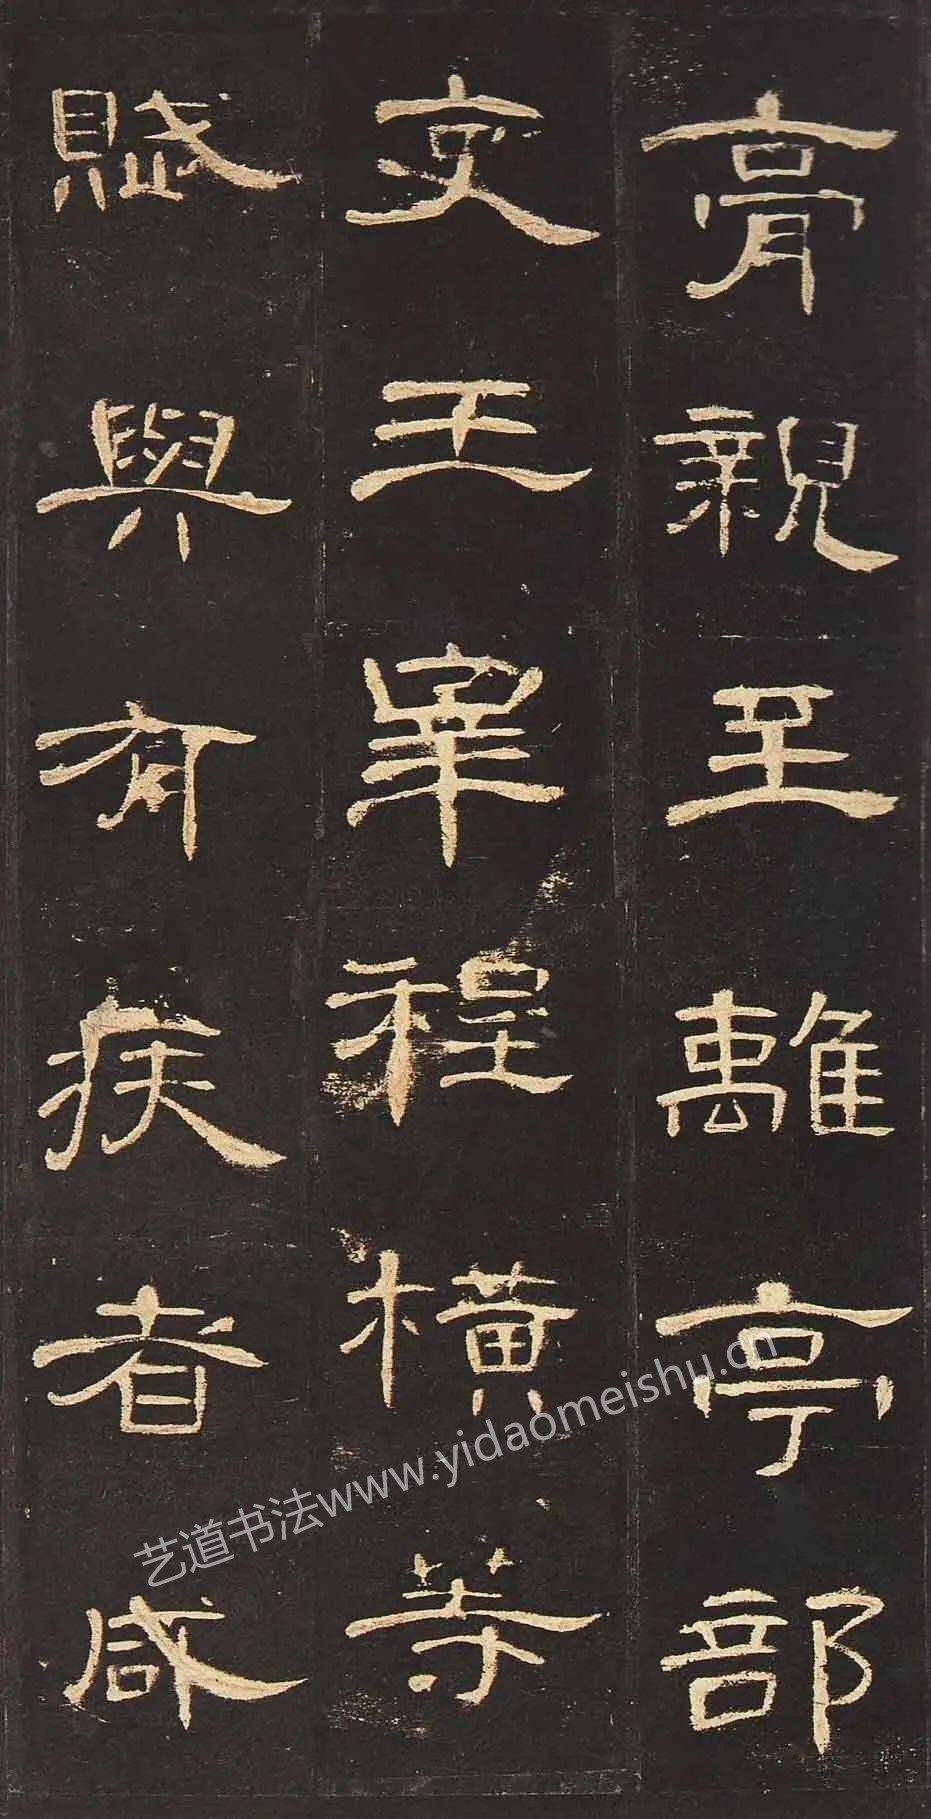 膏親至離亭部
史王皋程橫等
賦與有疾者咸
艺道书法www.yidaomeishu.cn